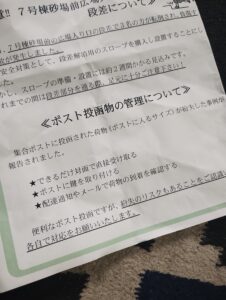 ７号棟砂場前広場
段差について！
７号棟砂場前広場入り口の段差で
が発生しました。
安全対策として、段差解消用のスロープを購入し設置することにし
スロープの準備・設置には約２週間かかる見込みです。
れまでの間は段差部分を通る際、足元に十分ご注意下さい！
≪ポスト投函物の管理について≫
集合ポストに投函された荷物(ポストに入るサイズ)が紛失した事例が
報告されました。
★できるだけ対面で直接受取る
★ポストに鍵を取り付ける
★配達通知やメールで荷物の到着を確認する
便利なポスト投函ですが、紛失のリスクもあることをご認識
各自で対応をお願いいたします。